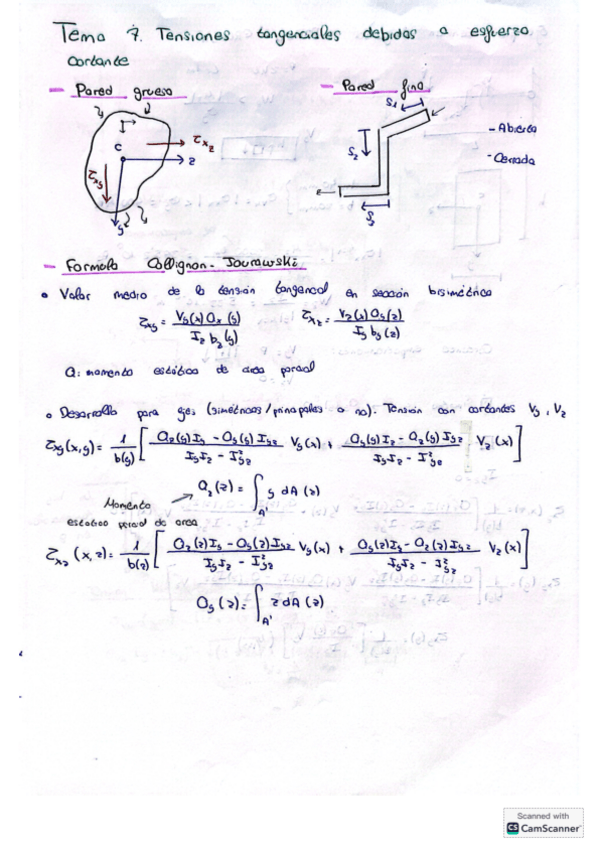 Tema 7. Tensiones tangenciales debidas a esfuerzo
cortante
- Pared gruesa
- Pared fina
S1
S2
S3
e
- Abierta
- Cerrada
C
τxz
τxy
z
y
- Formula Collignon-Jourawski
• Valor medio de la tensión tangencial en sección bisimétrica
τxy = Vy(x) Qz(y) / Iz bz(y)    τxz = Vz(x) Qy(z) / Iy by(z)
Q: momento estático de area parcial
o Desarrollo para ejes (simétricos/principales o no). Tension con cortantes Vy, Vz
τxy(x,y) = 1/b(y) [ (Qz(y) Iy - Qy(y) Iyz) / (Iy Iz - I²yz) Vy(x) + (Qy(y) Iz - Qz(y) Iyz) / (Iy Iz - I²yz) Vz(x) ]
Qz(z) = ∫A' y dA(z)
Momento
estático parcial de area
τxz(x,z) = 1/b(z) [ (Qz(z) Iy - Qy(z) Iyz) / (Iy Iz - I²yz) Vy(x) + (Qy(z) Iy - Qz(z) Iyz) / (Iy Iz - I²yz) Vz(x) ]
Qy(z) = ∫A' z dA(z)
Scanned with
CS CamScanner